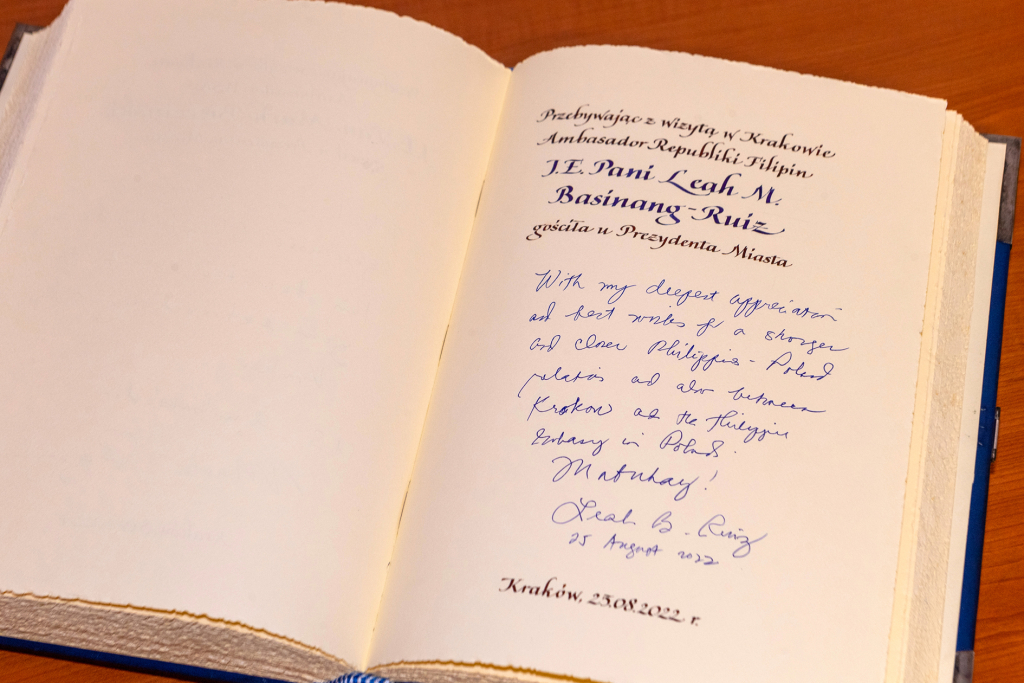 Przebywając z wizytą w Krakowie
Ambasador Republiki Filipin
J.E. Pani Leah M.
Basinang-Ruiz
gościła u Prezydenta Miasta
With my deepest appreciation
and best wishes for a stronger
and closer Philippines - Poland
relations and also between
Krakow and the Philippine
Embassy in Poland.
Mabuhay!
Leah B. Ruiz
25 August 2022
Kraków, 25.08.2022 r.